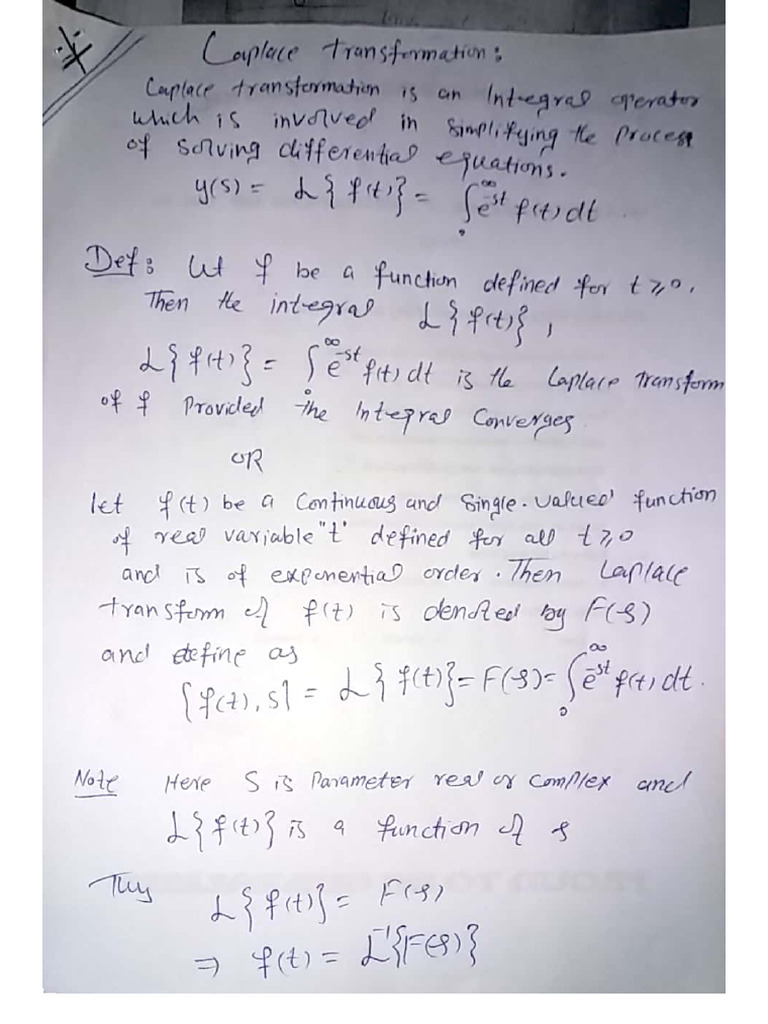 Laplace transformation:
Laplace transformation is an Integral operator
which is involved in simplifying the process
of solving differential equations.
y(s) = L{f(t)} = ∫₀^∞ e^-st f(t) dt
Def: Let f be a function defined for t ≥ 0.
Then the integral L{f(t)},
L{f(t)} = ∫₀^∞ e^-st f(t) dt is the Laplace Transform
of f Provided the Integral Converges
OR
let f(t) be a Continuous and Single-valued function
of real variable "t" defined for all t ≥ 0
and is of exponential order. Then Laplace
transform of f(t) is denoted by F(s)
and define as
[f(t), s] = L{f(t)} = F(s) = ∫₀^∞ e^-st f(t) dt.
Note Here S is Parameter real or complex and
L{f(t)} is a function of s
Thus L{f(t)} = F(s)
⇒ f(t) = L^-1{F(s)}